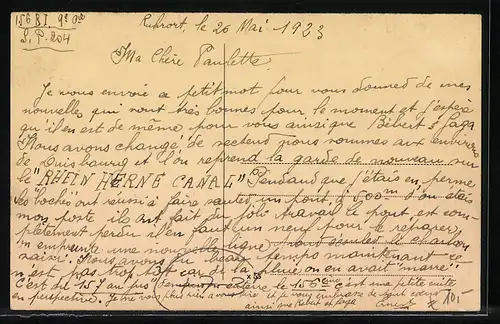 156 B I. 9e Cie
S. P. 204
Ruhrort, le 26 Mai 1923
Ma Chère Paulette
Je vous envoie ce petit mot pour vous donner de mes
nouvelles qui sont très bonnes pour le moment et j'espère
qu'il en est de même pour vous ainsi que Bébert & Gaga
Nous avons changé de secteur nous sommes aux environs
de Duisbourg et l'on reprend la garde de nouveau sur
le "RHEIN HERNE CANAL" Pendant que j'étais en perme
les boches ont réussi à faire sauter un pont, à 500m d'où étais
mon poste ils ont fait du joli travail le pont est com-
plètement perdu il en faut un neuf pour le réparer,
on emprunte une nouvelle ligne pour le charbon
saisi. Nous avons du beau temps maintenant ce
n'est pas trop tôt car de la pluie on en avait "marre".
C'est du 15 7 au jus le 156ème c'est une petite cuite
en perspective. Je ne vois plus rien à vous dire et je vous embrasse de tout cœur
ainsi que Bébert et Gaga
101-